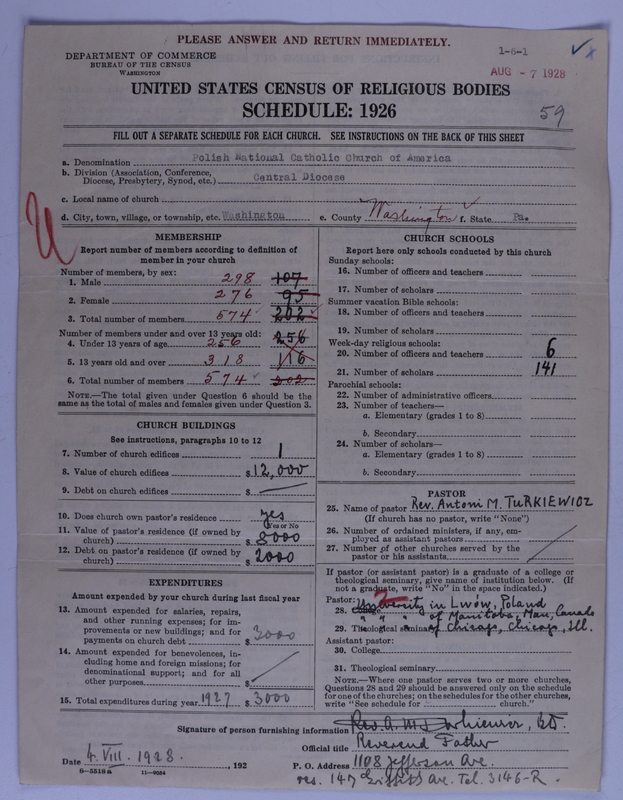 PLEASE ANSWER AND RETURN IMMEDIATELY.
1-6-1
DEPARTMENT OF COMMERCE
BUREAU OF THE CENSUS
WASHINGTON
AUG - 7 1928
UNITED STATES CENSUS OF RELIGIOUS BODIES
SCHEDULE: 1926
59
FILL OUT A SEPARATE SCHEDULE FOR EACH CHURCH. SEE INSTRUCTIONS ON THE BACK OF THIS SHEET
a. Denomination Polish National Catholic Church of America
b. Division (Association, Conference, Diocese, Presbytery, Synod, etc.) Central Diocese
c. Local name of church
d. City, town, village, or township, etc. Washington e. County Washington f. State Pa.
MEMBERSHIP
Report number of members according to definition of
member in your church
Number of members, by sex:
1. Male 298 107
2. Female 276 95
3. Total number of members 574 202
Number of members under and over 13 years old:
4. Under 13 years of age 256 256
5. 13 years old and over 318 116
6. Total number of members 574 202
NOTE.—The total given under Question 6 should be the
same as the total of males and females given under Question 3.
CHURCH BUILDINGS
See instructions, paragraphs 10 to 12
7. Number of church edifices 1
8. Value of church edifices $12,000
9. Debt on church edifices $
10. Does church own pastor's residence yes
Yes or No
11. Value of pastor's residence (if owned by
church) $ 8000
12. Debt on pastor's residence (if owned by
church) $ 2000
EXPENDITURES
Amount expended by your church during last fiscal year
13. Amount expended for salaries, repairs,
and other running expenses; for im-
provements or new buildings; and for
payments on church debt $ 3000
14. Amount expended for benevolences, in-
cluding home and foreign missions; for
denominational support; and for all
other purposes $
15. Total expenditures during year 1927 $ 3000
CHURCH SCHOOLS
Report here only schools conducted by this church
Sunday schools:
16. Number of officers and teachers
17. Number of scholars
Summer vacation Bible schools:
18. Number of officers and teachers
19. Number of scholars
Week-day religious schools:
20. Number of officers and teachers 6
21. Number of scholars 141
Parochial schools:
22. Number of administrative officers
23. Number of teachers—
a. Elementary (grades 1 to 8)
b. Secondary
24. Number of scholars—
a. Elementary (grades 1 to 8)
b. Secondary
PASTOR
25. Name of pastor Rev. Antoni M. TURKIEWICZ
(If church has no pastor, write "None")
26. Number of ordained ministers, if any, em-
ployed as assistant pastors
27. Number of other churches served by the
pastor or his assistants
If pastor (or assistant pastor) is a graduate of a college or
theological seminary, give name of institution below. (If
not a graduate, write "No" in the space indicated.)
Pastor:
28. College University in Lwów, Poland
" " of Manitoba, Man. Canada
29. Theological seminary of Chicago, Chicago, Ill.
Assistant pastor:
30. College
31. Theological seminary
NOTE.—Where one pastor serves two or more churches,
Questions 28 and 29 should be answered only on the schedule
for one of the churches; on the schedules for the other churches,
write "See schedule for church."
Signature of person furnishing information Rev. A. M.
Official title Reverend Father
Date 4. VIII. 1928. , 192 P. O. Address 1108 Jefferson Ave.
6-5518a 11-9054 res. 147 Griffith Ave. Tel. 3146-R.